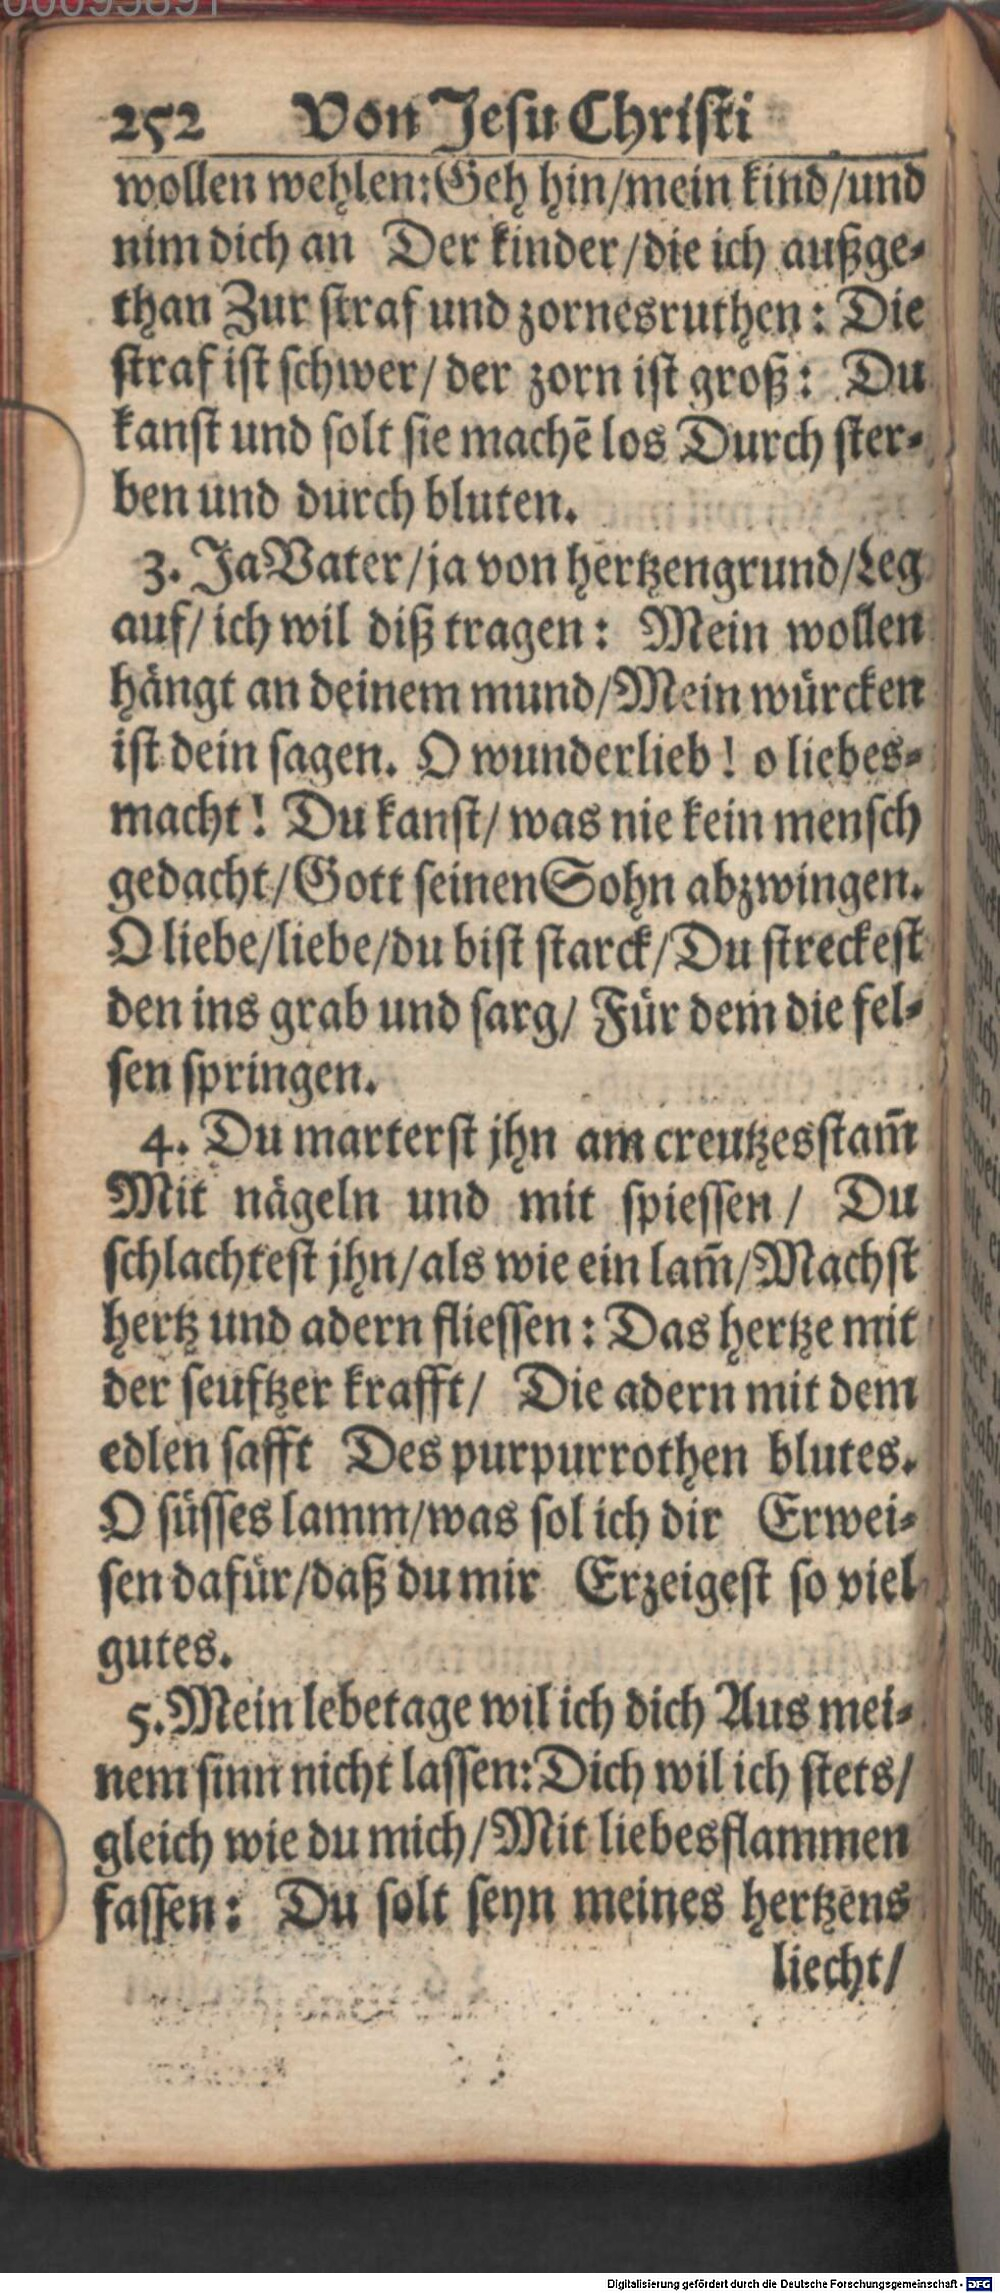 252 Von Jesu Christi
wollen wehlen: Geh hin/mein kind/und
nim dich an Der kinder/die ich außge-
than Zur straf und zornesruthen: Die
straf ist schwer/ der zorn ist groß: Du
kanst und solt sie machē los Durch ster-
ben und durch bluten.
3. Ja Vater/ja von hertzengrund/Leg
auf/ ich wil diß tragen: Mein wollen
hängt an deinem mund/Mein würcken
ist dein sagen. O wunderlieb! o liebes-
macht! Du kanst/ was nie kein mensch
gedacht/Gott seinen Sohn abzwingen.
O liebe/liebe/du bist starck/Du streckest
den ins grab und sarg/ Für dem die fel-
sen springen.
4. Du marterst jhn am creutzesstam̄
Mit nägeln und mit spiessen/ Du
schlachtest jhn/als wie ein lam̄/Machst
hertz und adern fliessen: Das hertze mit
der seuftzer krafft/ Die adern mit dem
edlen safft Des purpurrothen blutes.
O süsses lamm/was sol ich dir Erwei-
sen dafür/daß du mir Erzeigest so viel
gutes.
5. Mein lebetage wil ich dich Aus mei-
nem sinn nicht lassen: Dich wil ich stets/
gleich wie du mich/Mit liebesflammen
fassen: Du solt seyn meines hertzens
liecht/
Digitalisierung gefördert durch die Deutsche Forschungsgemeinschaft - DFG